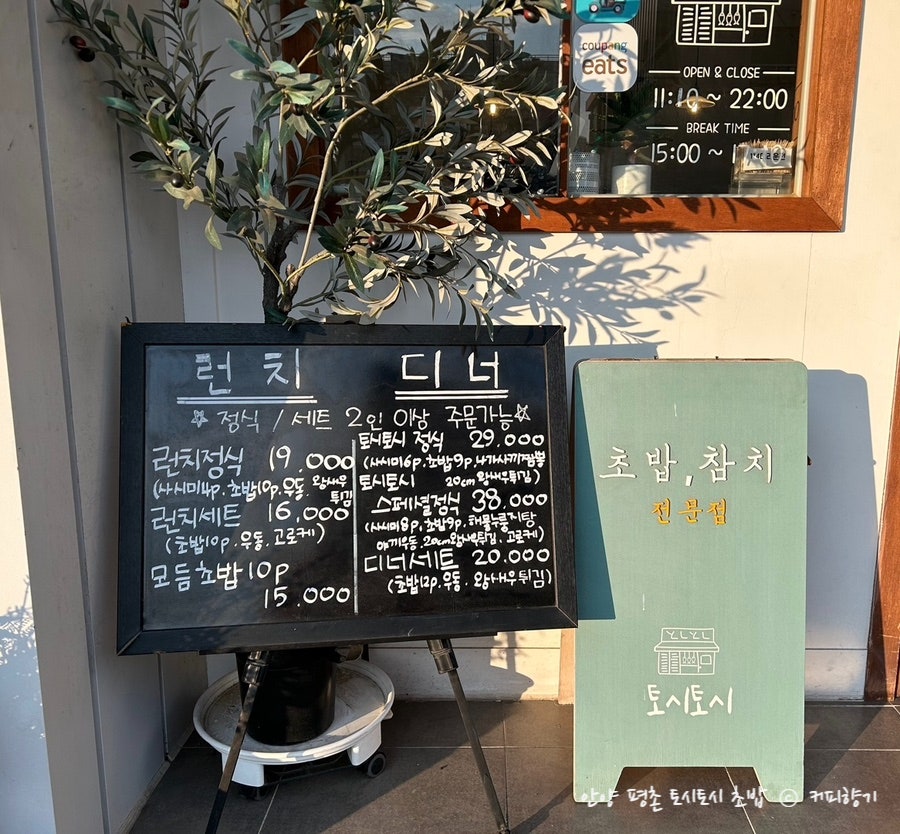 coupang
eats
OPEN & CLOSE
22:00
BREAK TIME
15:00 ~
런치
디너
정식 / 세트 2인 이상 주문가능
런치정식 19.000
(사시미4p.초밥10p.우동.왕새우
튀김
런치세트 16,000
(초밥10p.우동.고로케)
모듬초밥10p
15.000
토시토시 정식 29.000
(사시미6p.초밥9p.나가사끼짬뽕
20cm왕새우튀김)
토시토시
스페셜정식 38,000
(사시미8p.초밥9p.해물누룽지탕
야끼우동.20cm왕새우튀김.고로케)
디너세트 20.000
(초밥12p.우동.왕새우튀김)
초밥,참치
전문점
토시토시
안양 평촌 토시토시 초밥 © 커피향기